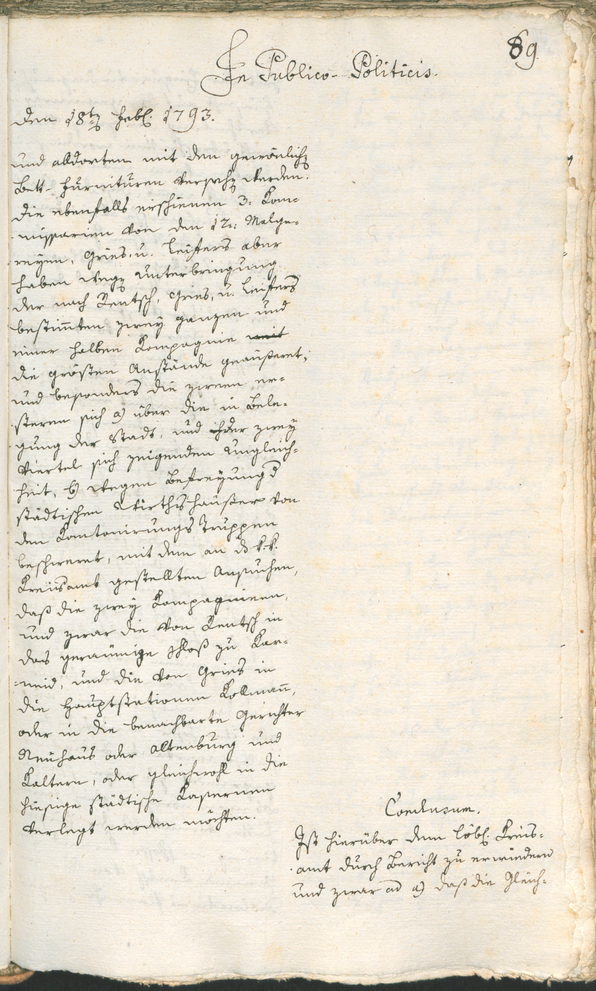 89
In Publico-Politicis.
den 18ten Febr. 1793.
und alldorten mit dem gewönlich
Bett-Furnituren versehen werden.
Die ebenfalls erschienen 3: Kom-
missarien von den 12: Malge-
reyen, Gries, u. Leifers aber
haben wegen Unterbringung
der nach Rentsch, Gries, u. Leifers
bestimten zwey ganzen und
einer halben Compagnie mit
die grösten Anstände geäusseret,
und besonders die zween er-
steren sich a) über die in Bele-
gung der Stadt, und ihder zwey
Viertel sich zeigenden Ungleich-
heit, b) wegen Befreyung d
städtischen Wirthshäußer von
den Kantonirungs Truppen
beschweret, mit dem an d. k.k.
Kreisamt gestellten Ansuchen,
daß die zwey Compagnieen,
und zwar die von Rentsch in
das geraumige Schloß zu Kar-
neid, und die von Gries in
die Hauptstationen Kollmann,
oder in die benachbarte Gerichter
Neuhaus oder Altenburg und
Kaltern, oder gleichwohl in die
hiesige städtische Kasernen
verlegt werden möchten.
Conclusum.
Ist hierüber dem löbl. Kreis-
amt durch Bericht zu erwiedern
und zwar ad a) daß die Gleich-